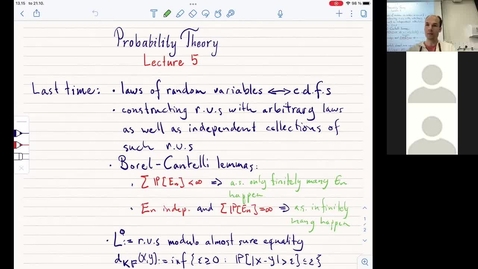 13.15 to 21.10.
94 %
Probability Theory
Lecture 5
Last time: • laws of random variables ⟷ c.d.f.s
• constructing r.v.s with arbitrary laws
as well as independent collections of
such r.v.s
• Borel-Cantelli lemmas:
• ∑ P[En] < ∞ ⟹ a.s. only finitely many En
happen
• En indep. and ∑ P[En] = ∞ ⟹ a.s. infinitely
many happen
• L⁰ := r.v.s modulo almost sure equality
d_KF(X,Y) := inf { ε ≥ 0 : P[|X-Y| > ε] ≤ ε }